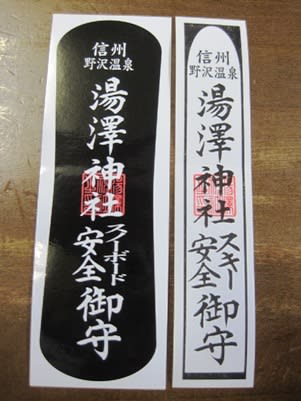 信州
野沢温泉
湯澤神社
スノーボード
安全御守
信州
野沢温泉
湯澤神社
スキー
安全御守